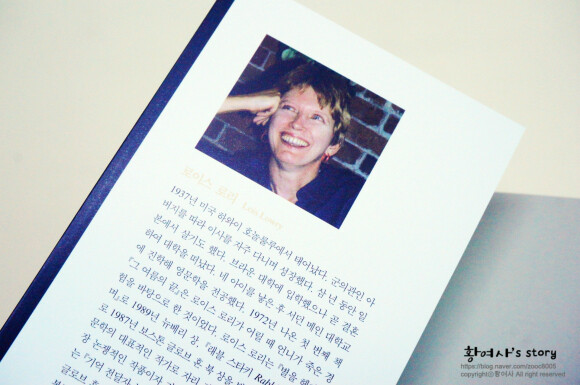 로이스 로리 Lois Lowry
1937년 미국 하와이 호놀룰루에서 태어났다. 군의관인 아
버지를 따라 이사를 자주 다니며 성장했다. 삼 년 동안 일
본에서 살기도 했다. 브라운 대학에 입학했으나 곧 결혼
하여 대학을 떠났다. 네 아이를 낳은 후 서던 메인 대학교
에 진학해 영문학을 전공했다. 1972년 나온 첫 번째 책
『그 여름의 끝』은 로이스 로리가 어릴 때 언니가 죽은 경
험을 바탕으로 한 것이었다. 로이스 로리는 『별을 헤
며』로 1989년 뉴베리 상, 『래블 스타키 Rab
로 1987년 보스톤 글로브 혼 북 상을 받
문학의 대표적인 작가로 자리
장 논쟁적인 작품이자
는 『기억 전달자
황여사's story
https://blog.naver.com/zooo8005
copyrightⓒ황여사 All right reserved